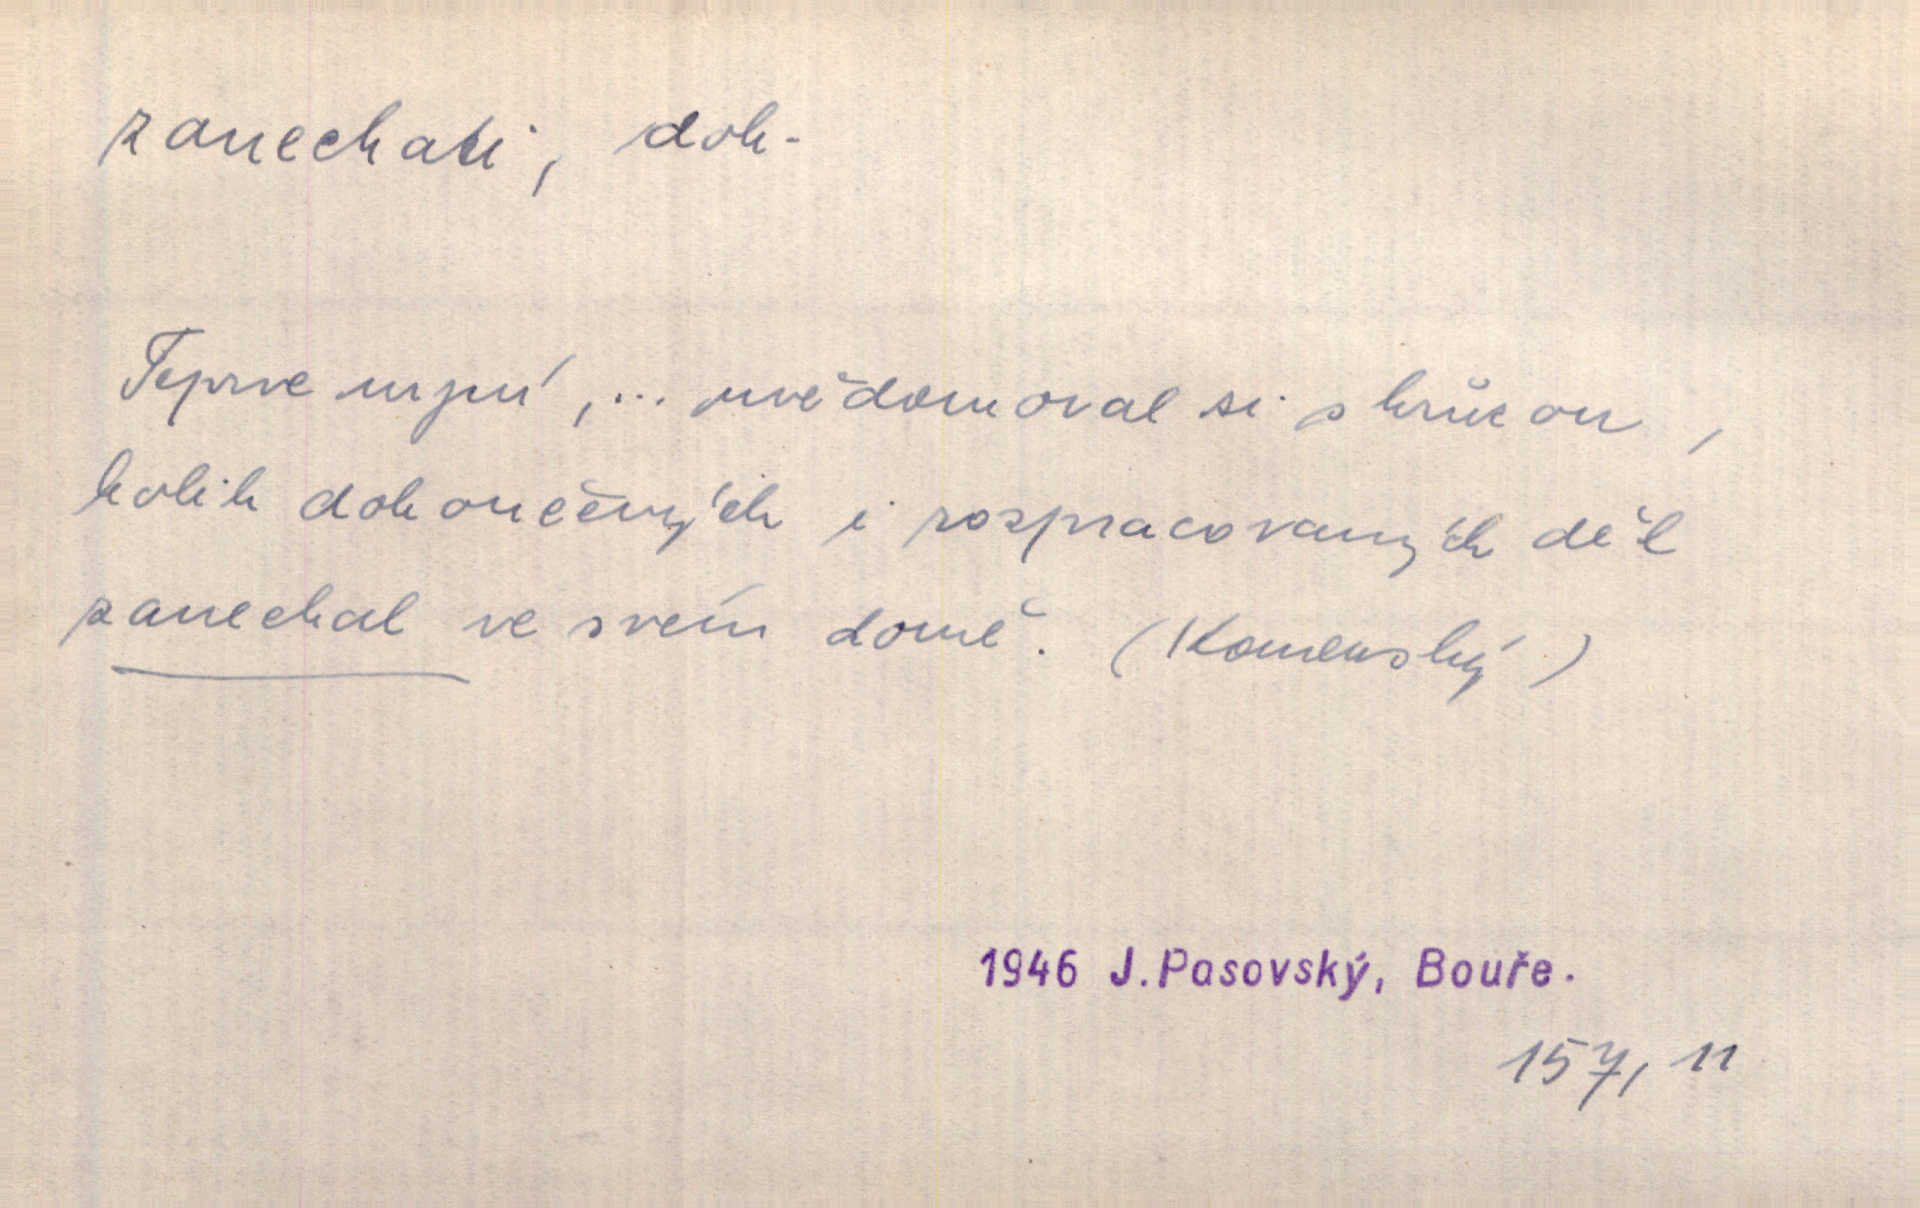 zanechati, dok-
Teprve nyní, ... uvědomoval si s hrůzou,
kolik dokončených i rozpracovaných děl
zanechal ve svém domě. (Komenský)
1946 J. Pasovský, Bouře.
157, 11